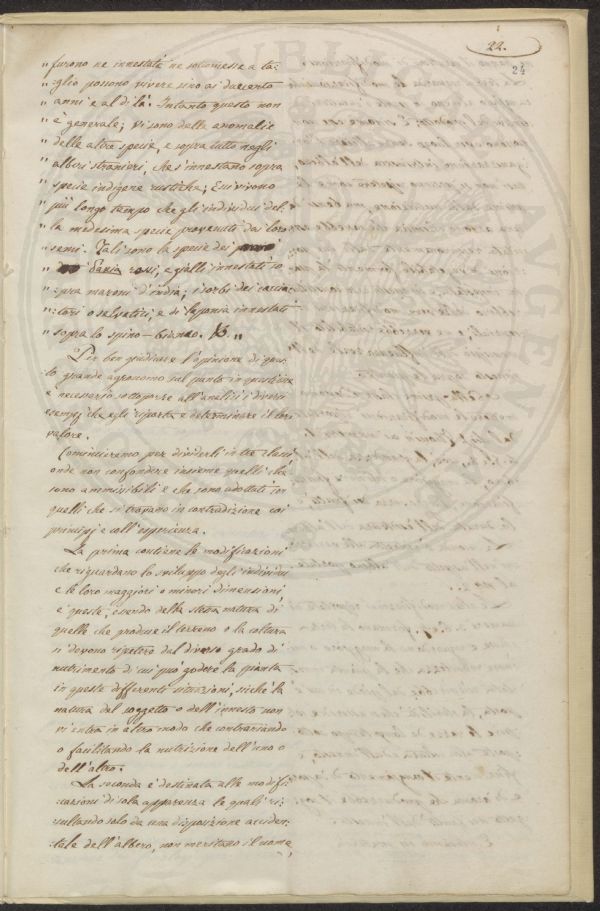 22.
24
„ furono ne innestate ne sotomesse a ta=
„ glio possono vivere sino ai duecento
„ anni e al di là. Intanto questo non
„ è generale; vi sono delle anomalie
„ delle altre specie, e sopra tutto negli
„ alberi stranieri, che s'innestano sopra
„ specie indigene rustiche; Essi vivono
„ più longo tempo che gli individui del=
„ la medesima specie provenuti dai loro
„ semi. Tali sono la specie dei
„ Pavia rossi, e gialli innestati so=
=pra maroni d'india; i sorbi dei caccia=
=tori o salvatici, e di laponia innestati
„ sopra lo spino-bianco. „
Per ben giudicare l'opinione di ques=
to grande agronomo sul punto in questione
è necessario sottoporre all'analisi i diversi
esempj che egli riporta e determinare il loro
valore.
Cominciaremo per dividerli in tre classi
onde non confondere insieme quelli che
sono ammissibili e che sono adottati con
quelli che si trovano in contradizione coi
principj e coll'esperienza.
La prima contiene le modificazioni
che riguardano lo sviluppo degli individui
e le loro maggiori o minori dimensioni,
e queste, essendo della stessa natura di
quelle che produce il terreno o la coltura
si devono ripetere dal diverso grado di
nutrimento di cui può godere la pianta
in queste differenti situazioni, sichè la
natura del soggetto o dell'innesto non
vi entra in altro modo che contrariando
o facilitando la nutrizione dell'uno o
dell'altro.
La seconda è destinata alle modifi=
cazioni di sola apparenza le quali ri=
sultando solo da una disposizione acciden=
tale dell'albero, non meritano il nome